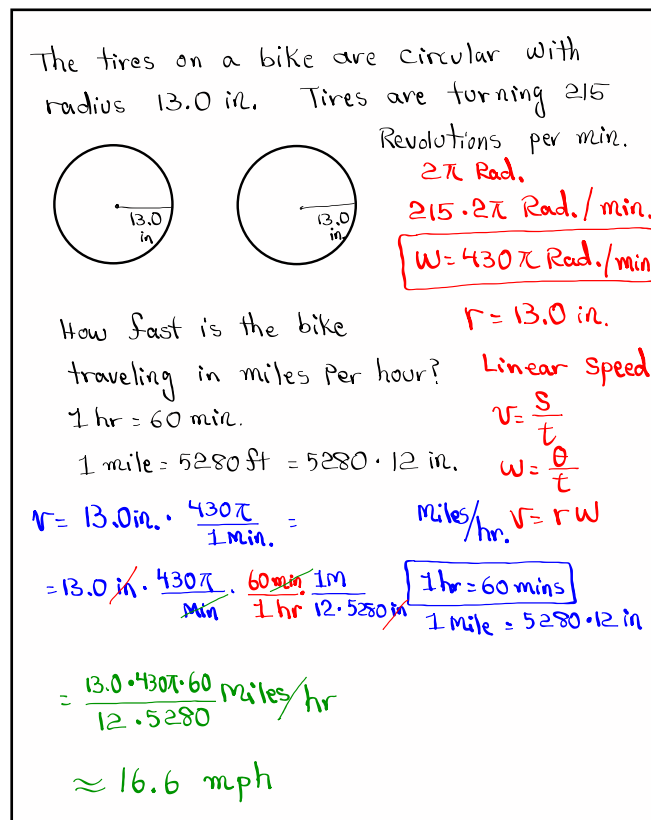 The tires on a bike are circular with
radius 13.0 in. Tires are turning 215
Revolutions per min.
2π Rad.
215·2π Rad./min.
W=430π Rad./min
13.0
in
13.0
in.
r=13.0 in.
How fast is the bike
traveling in miles Per hour?
Linear Speed
1 hr = 60 min.
v= S/t
1 mile = 5280 ft = 5280 · 12 in.
ω= θ/t
v= 13.0in. · 430π/1 Min. =
Miles/hr.
v=rW
=13.0 in · 430π/Min · 60min/1 hr · 1M/12·5280in
1 hr = 60 mins
1 Mile = 5280·12 in
= 13.0·430π·60/12·5280 Miles/hr
≈ 16.6 mph